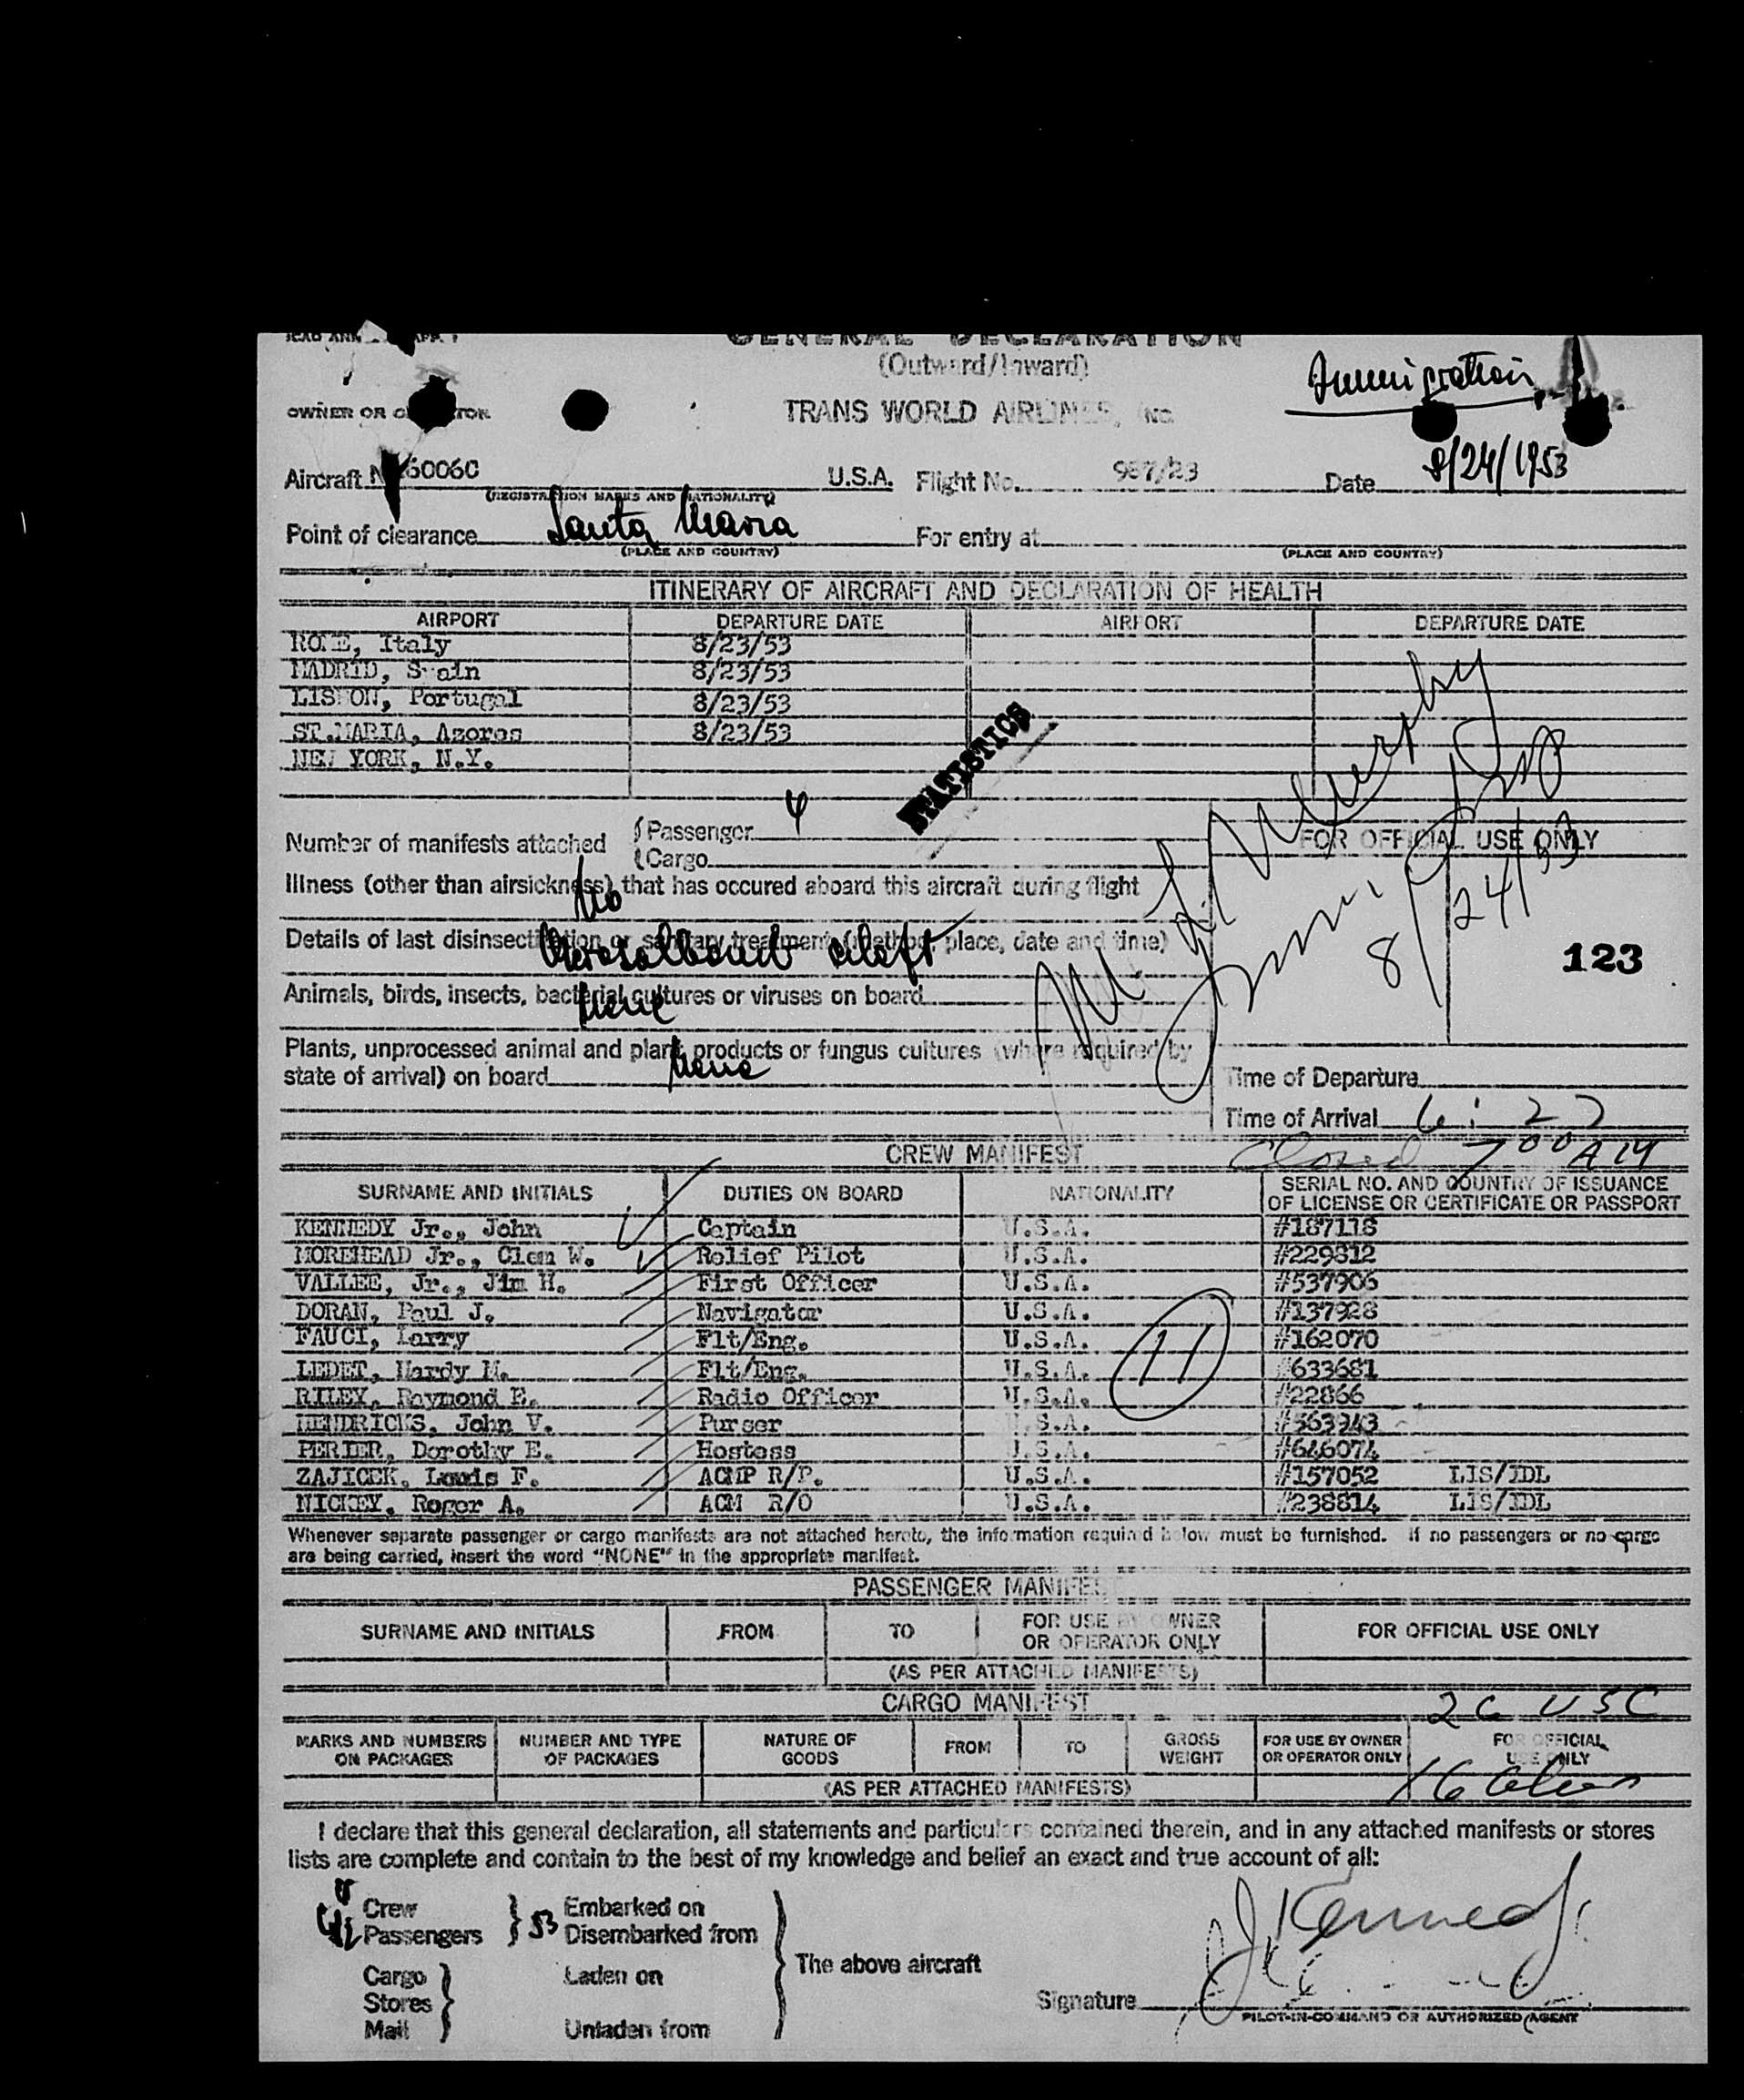 GENERAL DECLARATION
(Outward/Inward)
Immigration
OWNER OR OPERATOR
TRANS WORLD AIRLINES, INC.
Aircraft N 6006C U.S.A. Flight No. 967/23 Date 8/24/1953
(REGISTRATION MARKS AND NATIONALITY)
Point of clearance Santa Maria For entry at
(PLACE AND COUNTRY) (PLACE AND COUNTRY)
ITINERARY OF AIRCRAFT AND DECLARATION OF HEALTH
AIRPORT DEPARTURE DATE AIRPORT DEPARTURE DATE
ROME, Italy 8/23/53
MADRID, Spain 8/23/53
LISBON, Portugal 8/23/53
ST.MARIA, Azores 8/23/53
NEW YORK, N.Y.
STATISTICS
Number of manifests attached Passenger 4
Cargo
FOR OFFICIAL USE ONLY
Illness (other than airsickness) that has occured aboard this aircraft during flight
No
Details of last disinsectization or sanitary treatment (method, place, date and time)
8/24/53
123
Animals, birds, insects, bacterial cultures or viruses on board
None
Plants, unprocessed animal and plant products or fungus cultures (where required by
state of arrival) on board None
Time of Departure
Time of Arrival 6:27
Closed 7 00 AM
CREW MANIFEST
SURNAME AND INITIALS DUTIES ON BOARD NATIONALITY SERIAL NO. AND COUNTRY OF ISSUANCE
OF LICENSE OR CERTIFICATE OR PASSPORT
KENNEDY Jr., John Captain U.S.A. #187118
MOREHEAD Jr., Clem W. Relief Pilot U.S.A. #229812
VALLEE, Jr., Jim H. First Officer U.S.A. #537906
DORAN, Paul J. Navigator U.S.A. #137928
FAUCI, Larry Flt/Eng. U.S.A. #162070
LEDET, Hardy M. Flt/Eng. U.S.A. #633681
RILEY, Raymond E. Radio Officer U.S.A. #22866
HENDRICKS, John V. Purser U.S.A. #563943
PERIER, Dorothy E. Hostess U.S.A. #646074
ZAJICEK, Louis F. ACMP R/P. U.S.A. #157052 LIS/IDL
NICKEY, Roger A. ACM R/O U.S.A. #238814 LIS/IDL
11
Whenever separate passenger or cargo manifests are not attached hereto, the information required below must be furnished. If no passengers or no cargo
are being carried, insert the word "NONE" in the appropriate manifest.
PASSENGER MANIFEST
SURNAME AND INITIALS FROM TO FOR USE BY OWNER
OR OPERATOR ONLY FOR OFFICIAL USE ONLY
(AS PER ATTACHED MANIFESTS)
CARGO MANIFEST
26 USC
MARKS AND NUMBERS
ON PACKAGES NUMBER AND TYPE
OF PACKAGES NATURE OF
GOODS FROM TO GROSS
WEIGHT FOR USE BY OWNER
OR OPERATOR ONLY FOR OFFICIAL
USE ONLY
(AS PER ATTACHED MANIFESTS)
16
I declare that this general declaration, all statements and particulars contained therein, and in any attached manifests or stores
lists are complete and contain to the best of my knowledge and belief an exact and true account of all:
Crew Embarked on
Passengers 53 Disembarked from
The above aircraft
Cargo Laden on
Stores
Mail Unladen from
Signature J Kennedy Jr
PILOT-IN-COMMAND OR AUTHORIZED AGENT